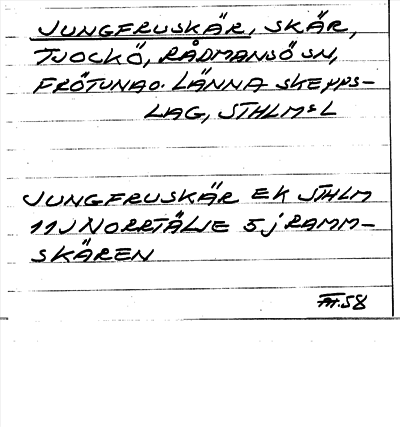 JUNGFRUSKÄR, SKÄR,
TJOCKÖ, RÅDMANSÖ SN,
FRÖTUNA O. LÄNNA SKEPPS-
LAG, STHLMS L
JUNGFRUSKÄR EK STHLM
11J NORRTÄLJE 5j RAMM-
SKÄREN
58